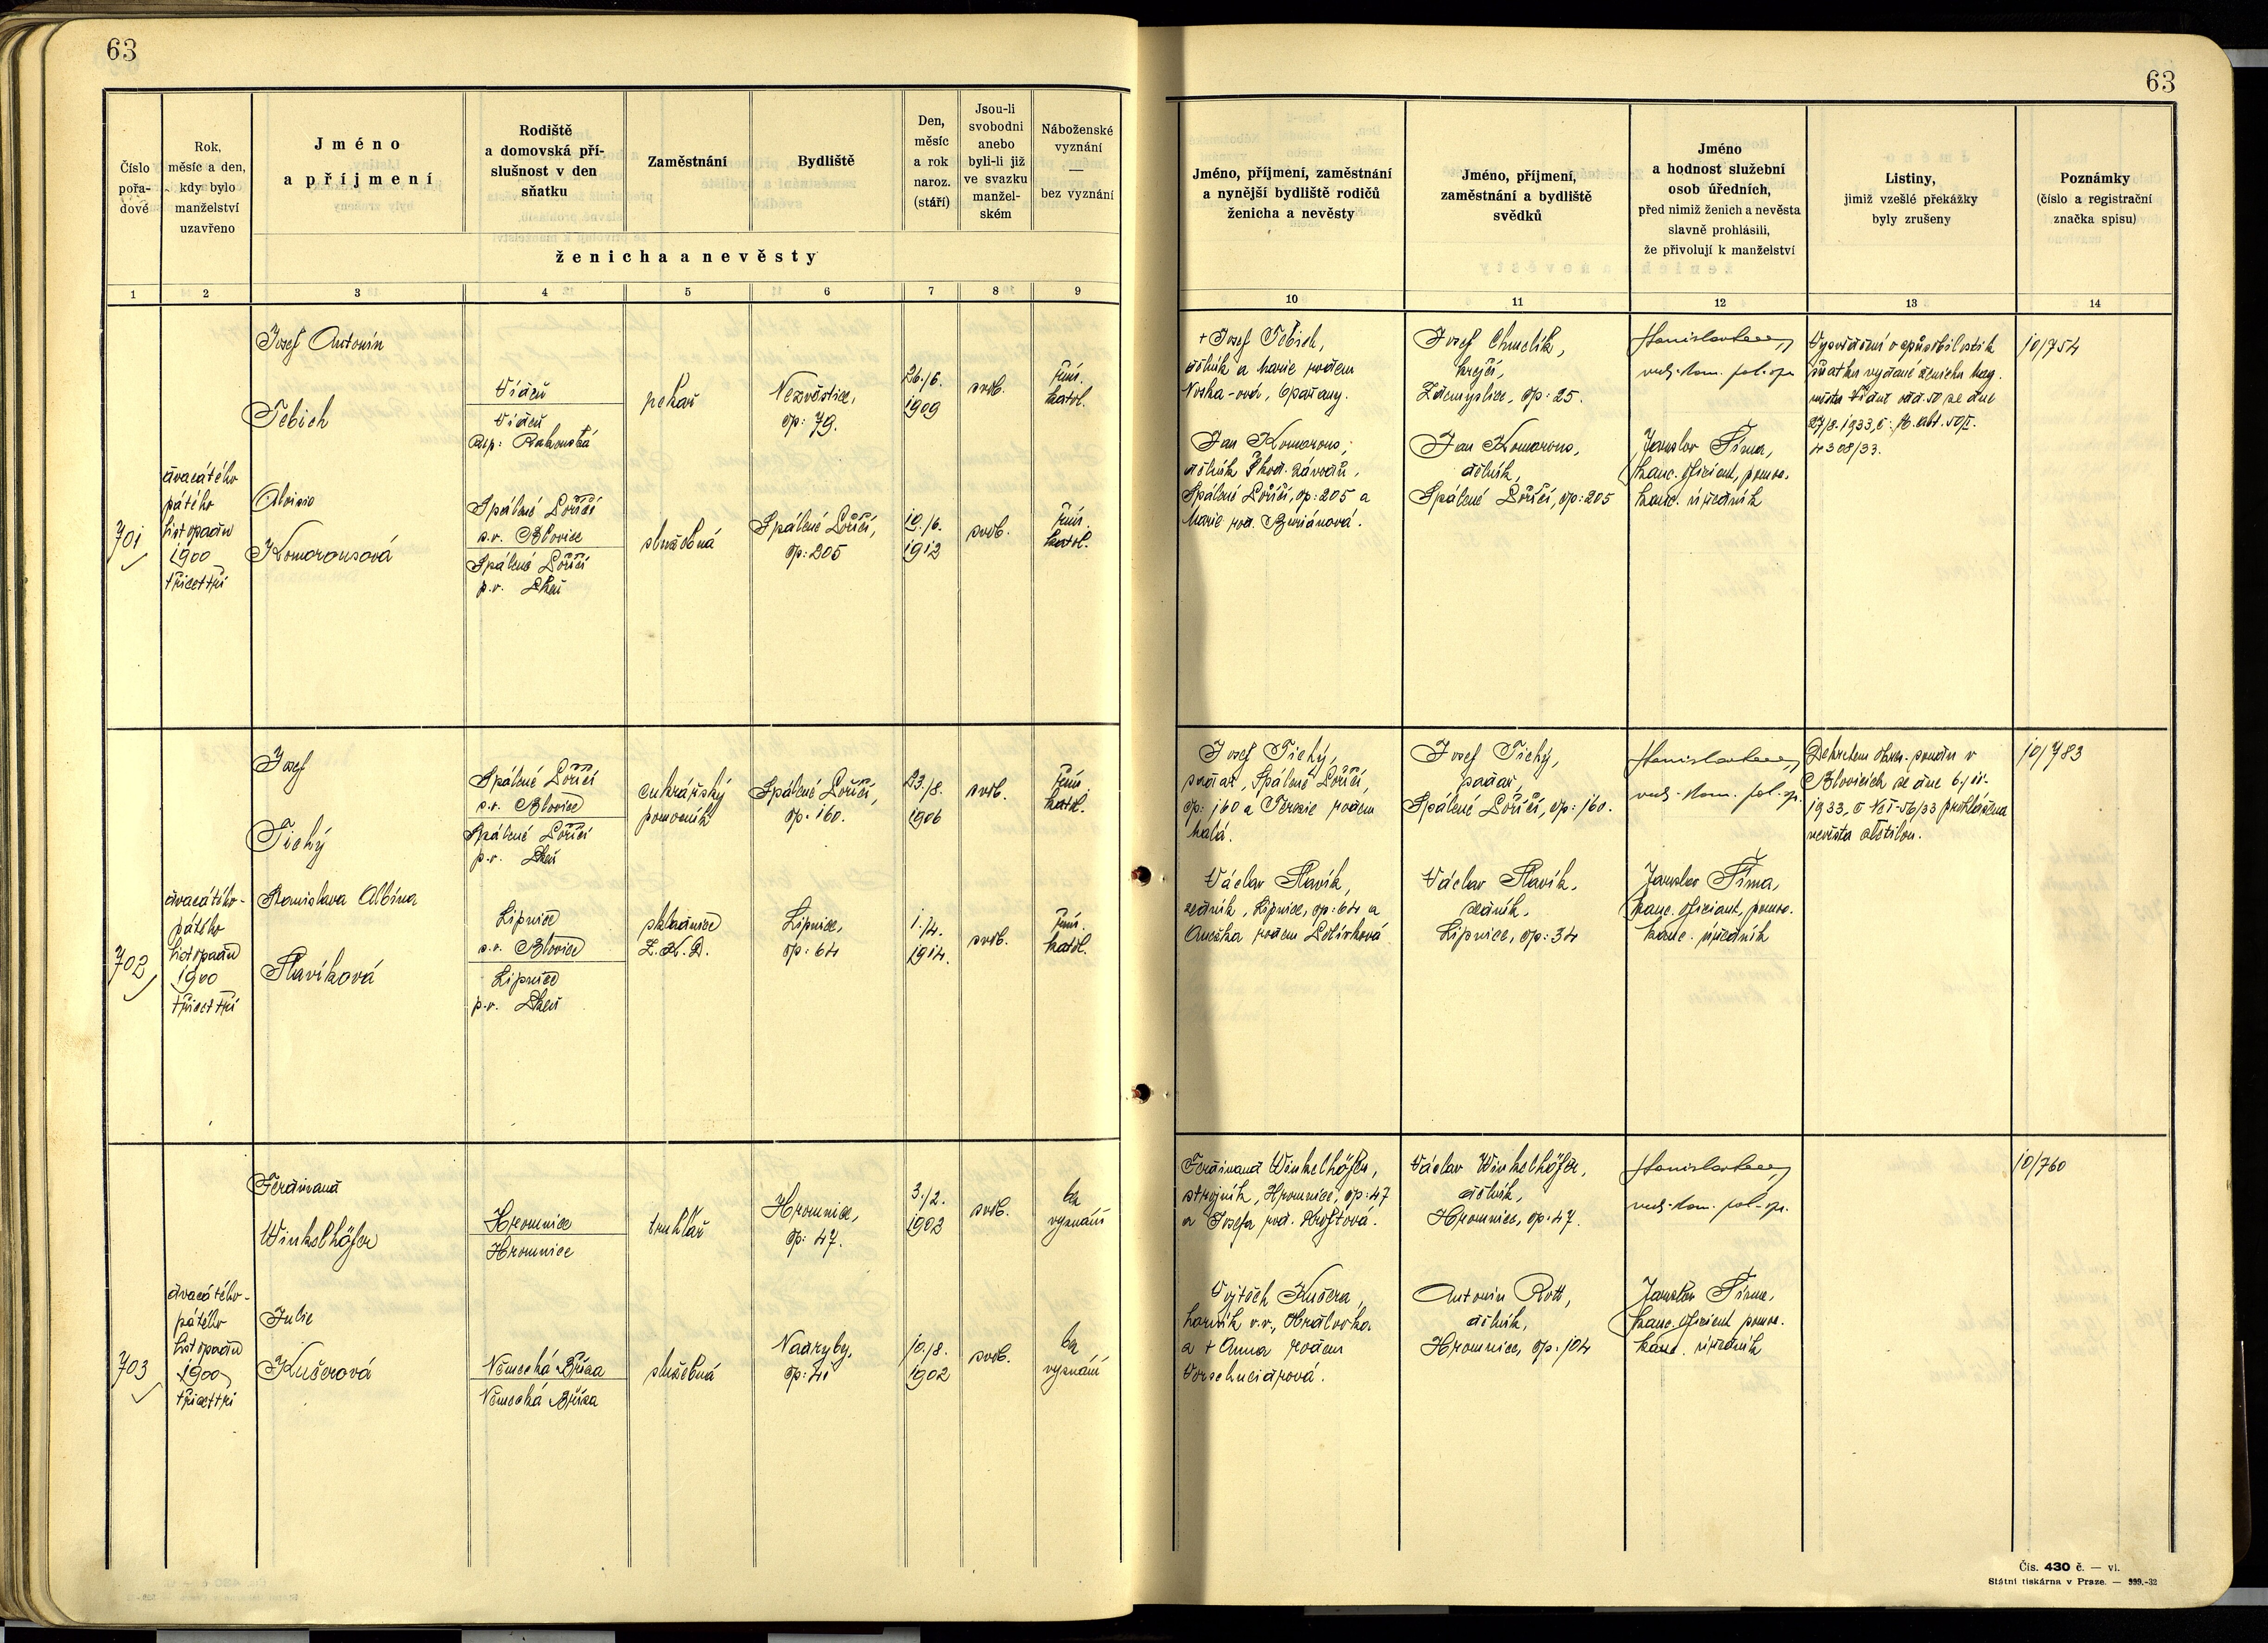 63
63
Číslo
pořa-
dové
Rok,
měsíc a den,
kdy bylo
manželství
uzavřeno
Jméno
a příjmení
Rodiště
a domovská pří-
slušnost v den
sňatku
Zaměstnání
Bydliště
Den,
měsíc
a rok
naroz.
(stáří)
Jsou-li
svobodni
anebo
byli-li již
ve svazku
manžel-
ském
Náboženské
vyznání
—
bez vyznání
ženicha a nevěsty
1 2 3 4 5 6 7 8 9
Jméno, příjmení, zaměstnání
a nynější bydliště rodičů
ženicha a nevěsty
Jméno, příjmení,
zaměstnání a bydliště
svědků
Jméno
a hodnost služební
osob úředních,
před nimiž ženich a nevěsta
slavně prohlásili,
že přivolují k manželství
Listiny,
jimiž vzešlé překážky
byly zrušeny
Poznámky
(číslo a registrační
značka spisu)
10 11 12 13 14
701
dvacátého
pátého
listopadu
1900
třicet tři
Josef Antonín
Tebich
Aloisie
Komorousová
Vídeň
Vídeň
Rep: Rakouská
Spálené Poříčí
s.o. Blovice
Spálené Poříčí
p.o.
pekař
služebná
Nezvěstice,
čp: 79.
Spálené Poříčí,
čp: 205
26./6.
1909
10./6.
1912
svob.
svob.
řím.
katol.
řím.
katol.
+ Josef Tebich,
dělník a Marie rodem
Noska-ová,
Jan Komorous,
dělník Škod. závodů,
Spálené Poříčí, čp: 205 a
Marie roz. Buriánová.
Josef Chmelík,
krejčí,
Zdemyslice, čp: 25.
Jan Komorous,
dělník,
Spálené Poříčí, čp: 205
Jaroslav Šíma,
kanc. oficiant, pomoc.
kanc. úředník
Vysvědčení o způsobilosti k
sňatku vydané ženichu mag.
města Vídně odd. 50 ze dne
27/8. 1933, č: M. Abt. 50/I.
4308/33.
10/754
702
dvacátého-
pátého
listopadu
1900
třicet tři
Josef
Tichý
Stanislava Albína
Slavíková
Spálené Poříčí
s.o. Blovice
Spálené Poříčí
p.o.
Lipnice
s.o. Blovice
Lipnice
p.o.
cukrářský
pomocník
skladnice
Z.K.D.
Spálené Poříčí,
čp. 160.
Lipnice,
čp: 64
23./8.
1906
1./4.
1914.
svob.
svob.
řím.
katol.
řím.
katol.
Josef Tichý,
pekař, Spálené Poříčí,
čp: 160 a Terezie rodem
Malá.
Václav Slavík,
zedník, Lipnice, čp: 64 a
Anežka rodem
Josef Tichý,
Spálené Poříčí, čp: 160.
Václav Slavík,
zedník,
Lipnice, čp: 34
Jaroslav Šíma,
kanc. oficiant, pomoc.
kanc. úředník
Dekretem okres. soudu v
Blovicích ze dne 6./11.
1933, č Nc I-56/33 prohlášena
nevěsta zletilou.
10/783
703
dvacátého-
pátého
listopadu
1900
třicet tři
Ferdinand
Winkelhöfer
Julie
Kučerová
Hromnice
Hromnice
Německá Bříza
Německá Bříza
truhlář
služebná
Hromnice,
čp: 47.
Nadryby,
čp: 41
3./2.
1902
10./8.
1902
svob.
svob.
bez
vyznání
bez
vyznání
Ferdinand Winkelhöfer,
strojník, Hromnice, čp: 47
a Josefa roz. Kroftová.
Vojtěch Kučera,
horník v.v.,
a + Anna rodem
Václav Winkelhöfer,
dělník,
Hromnice, čp: 47.
Antonín Rott,
dělník,
Hromnice, čp: 104
Jaroslav Šíma,
kanc. oficient pomoc.
kanc. úředník
10/760
Čís. 430 č. — vl.
Státní tiskárna v Praze. — 399.-32